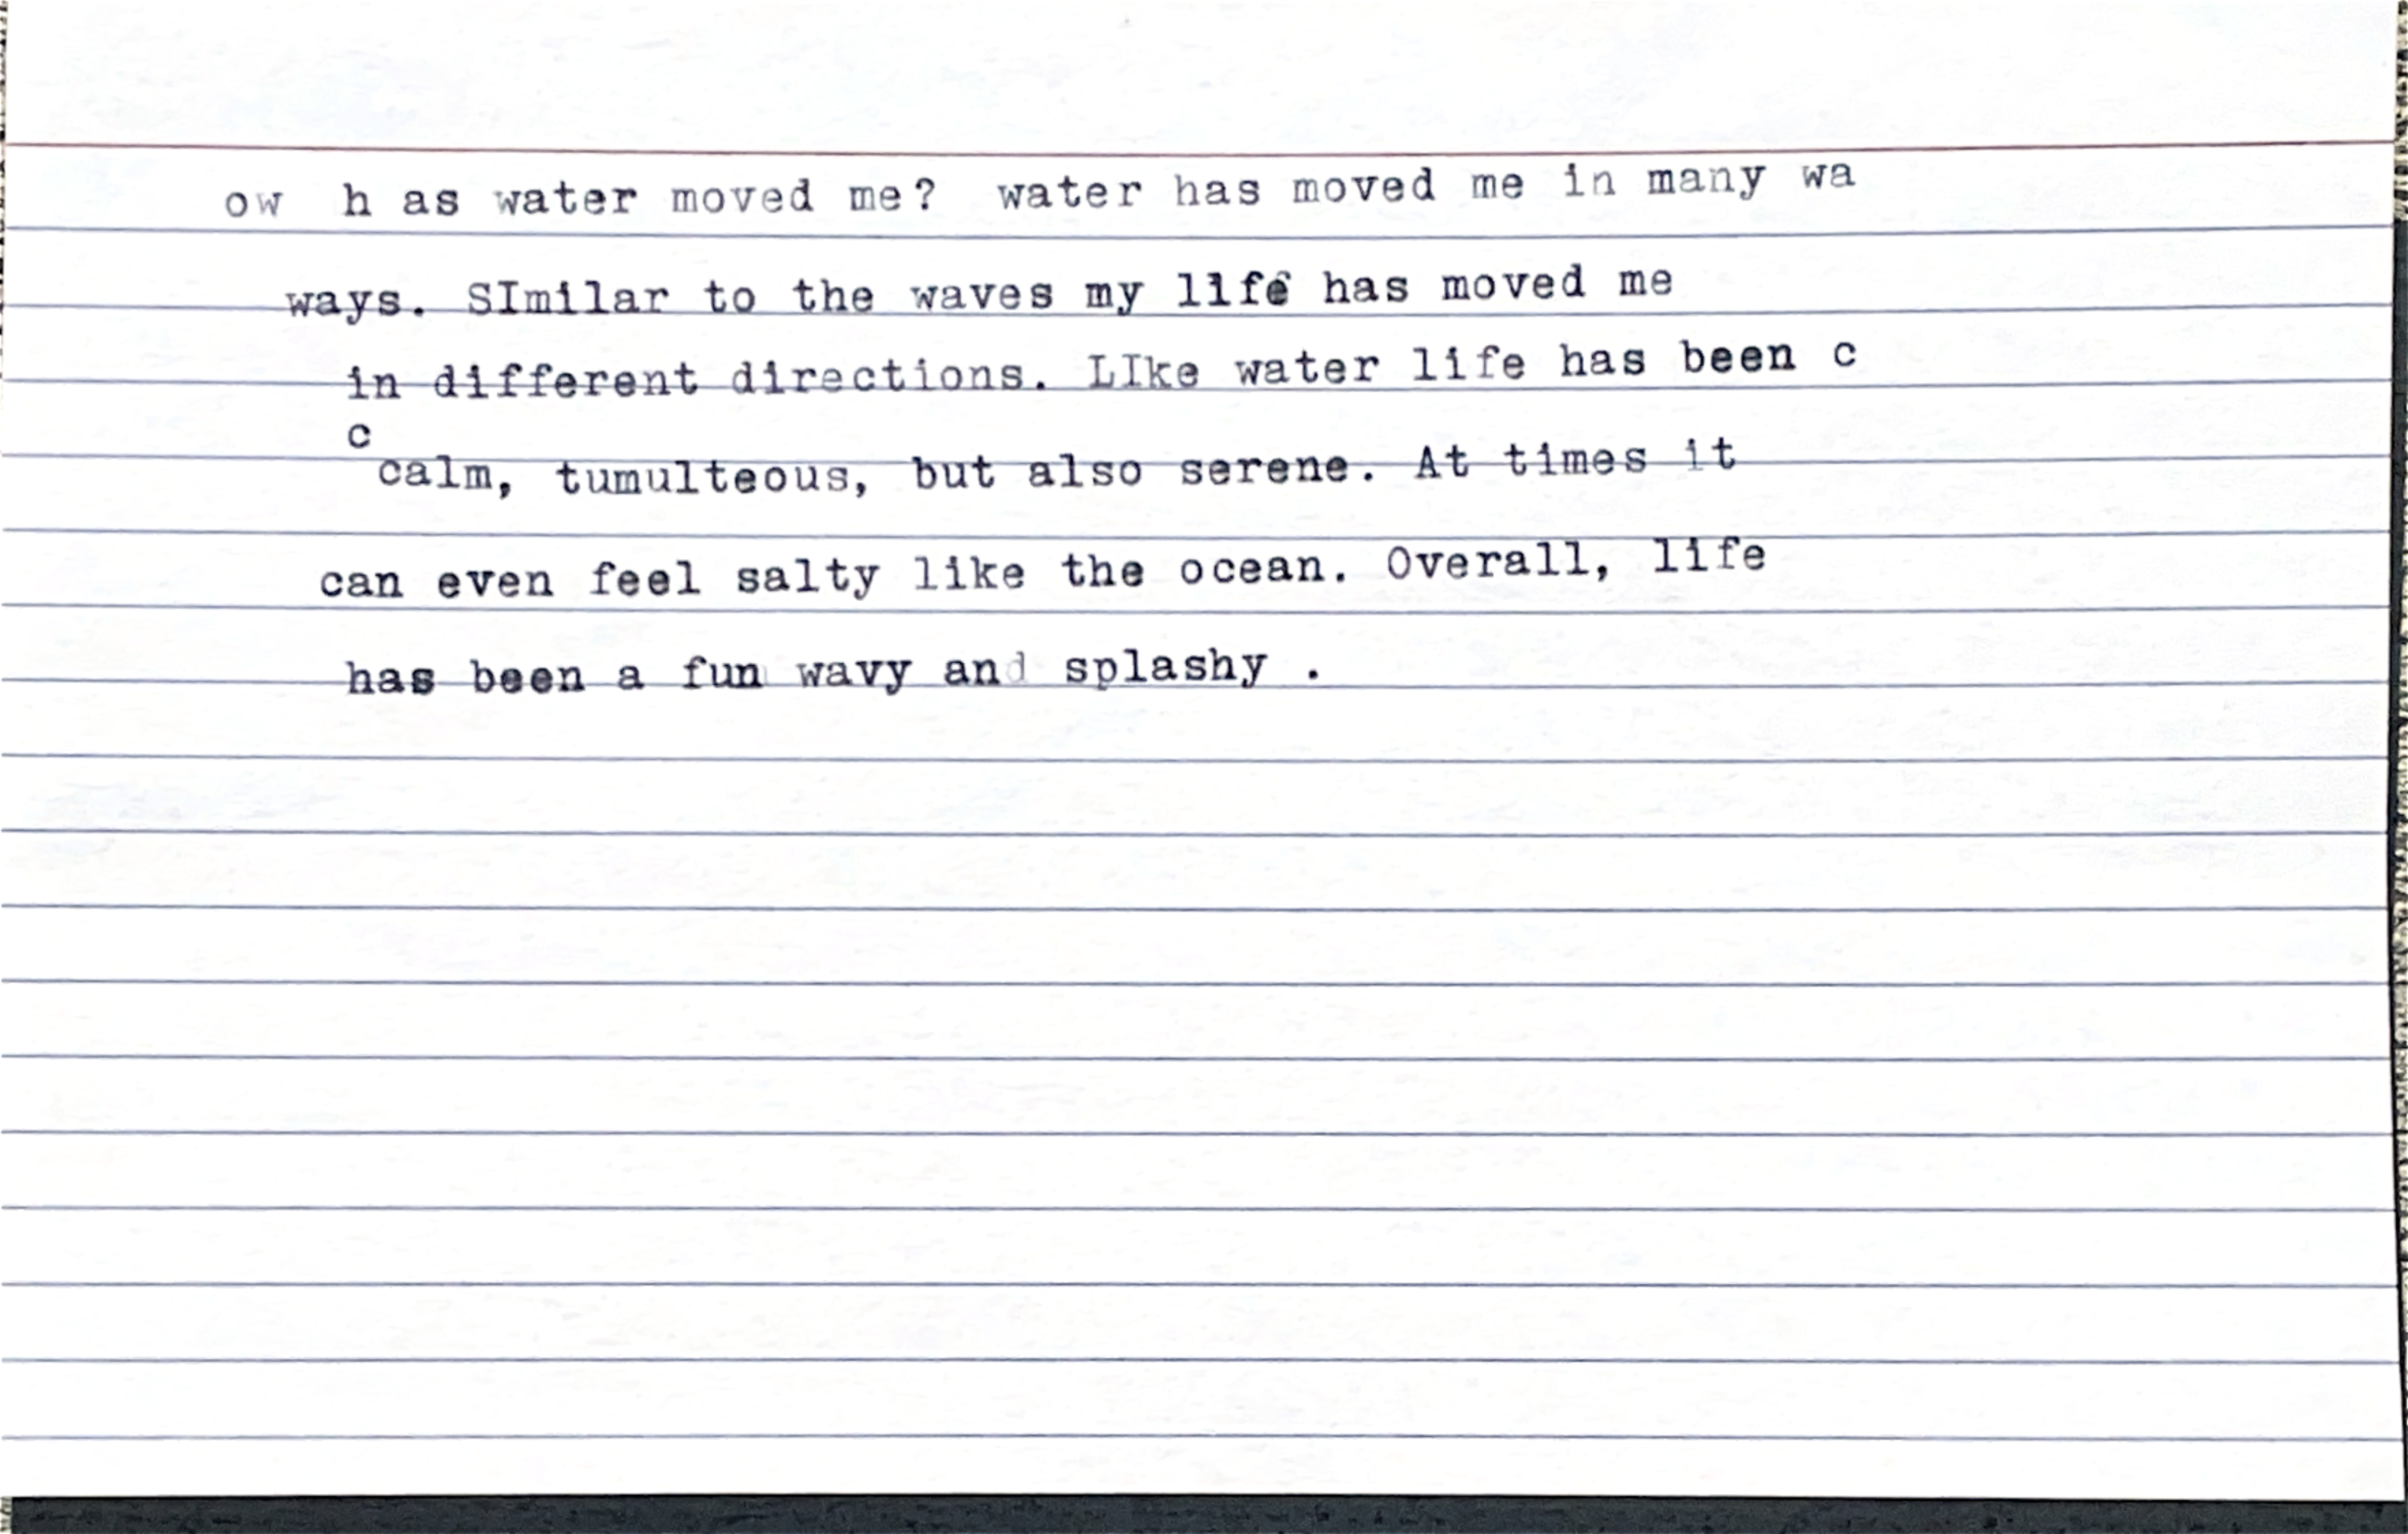 ow h as water moved me? water has moved me in many wa
ways. SImilar to the waves my life has moved me
in different directions. LIke water life has been c
c
calm, tumulteous, but also serene. At times it
can even feel salty like the ocean. Overall, life
has been a fun wavy and splashy .